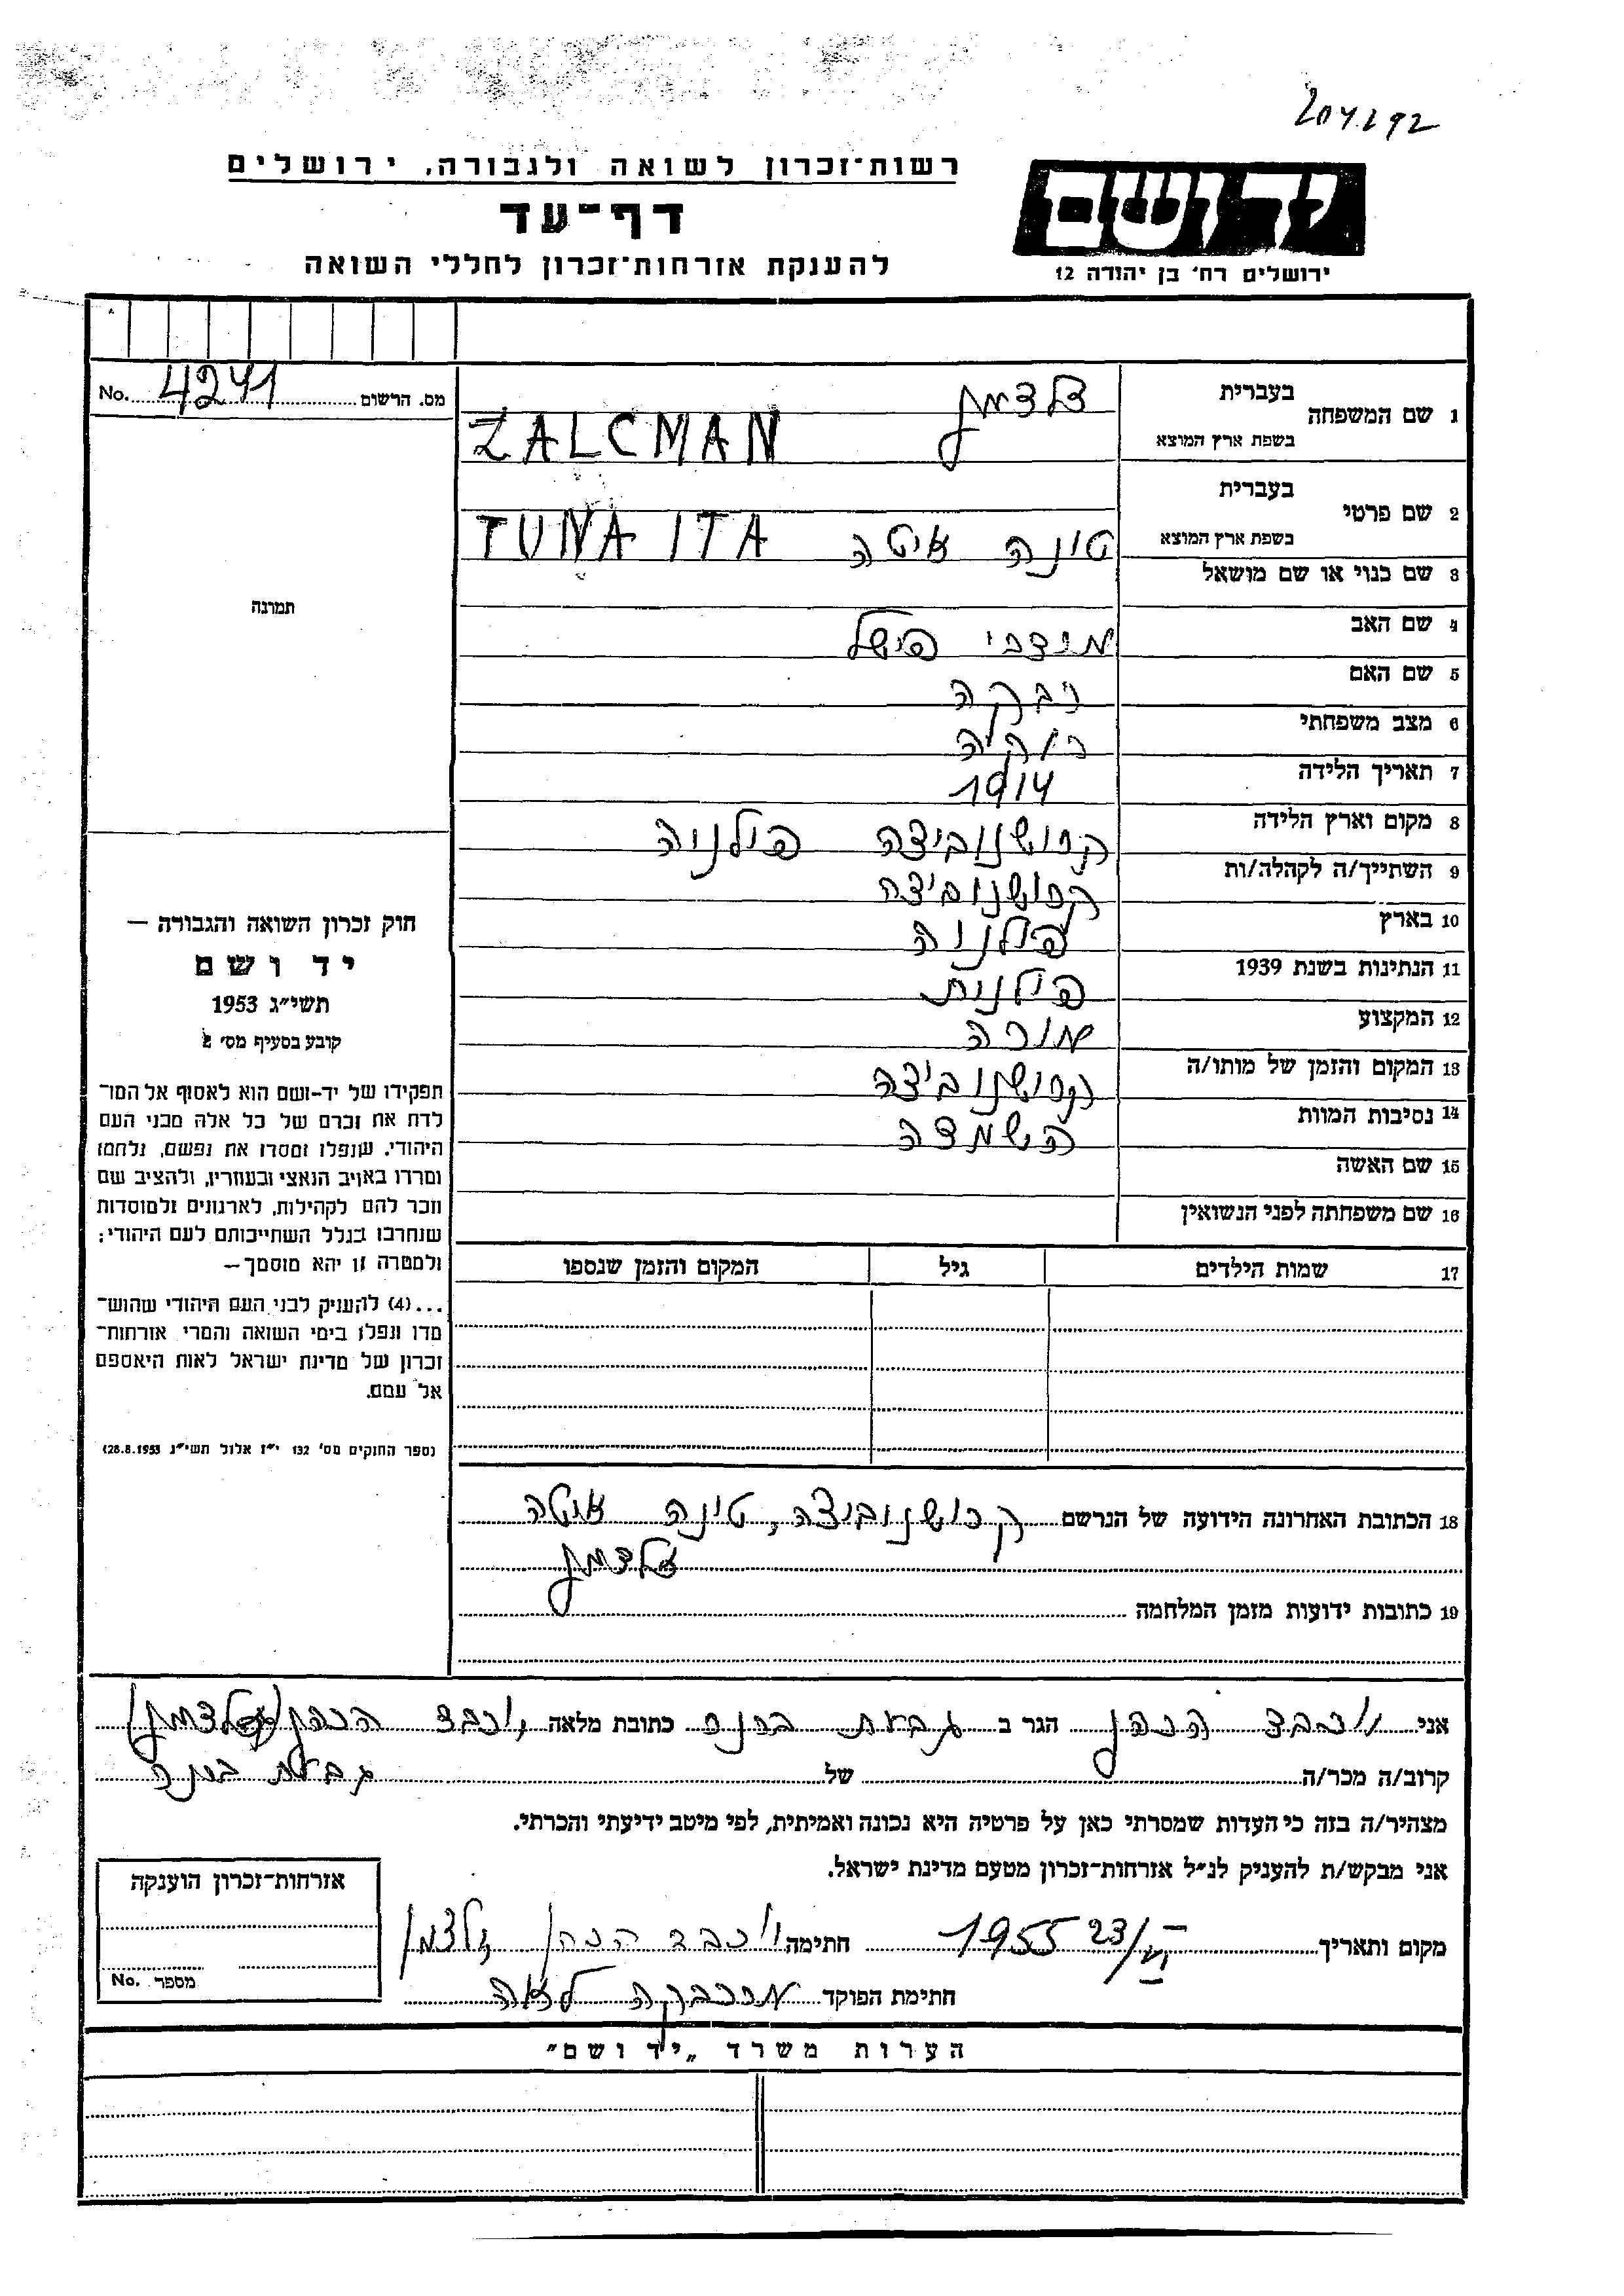 204292
רשות־זכרון לשואה ולגבורה, ירושלים
דף־עד
להענקת אזרחות־זכרון לחללי השואה
יד ושם
ירושלים רח' בן יהודה 12
מס. הרשום 4241 No.
1 שם המשפחה בעברית זלצמן
בשפת ארץ המוצא ZALCMAN
2 שם פרטי בעברית
בשפת ארץ המוצא טונה איטה TUNA ITA
3 שם כנוי או שם מושאל
4 שם האב מרדכי פישל
5 שם האם רבקה
6 מצב משפחתי רוקה
7 תאריך הלידה 1914
8 מקום וארץ הלידה קרושנוביצה פולניה
9 השתייך/ה לקהלה/ות קרושנוביצה
10 בארץ פולניה
11 הנתינות בשנת 1939 פולנית
12 המקצוע מורה
13 המקום והזמן של מותו/ה קרושנוביצה
14 נסיבות המוות השמדה
15 שם האשה
16 שם משפחתה לפני הנשואין
17 שמות הילדים גיל המקום והזמן שנספו
תמונה
חוק זכרון השואה והגבורה —
יד ושם
תשי״ג 1953
קובע בסעיף מס׳ 2
תפקידו של יד-ושם הוא לאסוף אל המו־
לדת את זכרם של כל אלה מבני העם
היהודי, שנפלו ומסרו את נפשם, נלחמו
ומרדו באויב הנאצי ובעוזריו, ולהציב שם
וזכר להם לקהילות, לארגונים ולמוסדות
שנחרבו בגלל השתייכותם לעם היהודי;
ולמטרה זו יהא מוסמך—
...(4) להעניק לבני העם היהודי שהוש־
מדו ונפלו בימי השואה והמרי אזרחות־
זכרון של מדינת ישראל לאות היאספם
אל עמם.
(ספר החוקים מס׳ 132 י״ז אלול תשי״ג 28.8.1953)
18 הכתובת האחרונה הידועה של הנרשם קרושנוביצה, טונה איטה
זלצמן
19 כתובות ידועות מזמן המלחמה
אני יוכבד הכהן הגר ב גבעת ברנר כתובת מלאה יוכבד הכהן (זלצמן)
קרוב/ה מכר/ה של גבעת ברנר
מצהיר/ה בזה כי העדות שמסרתי כאן על פרטיה היא נכונה ואמיתית, לפי מיטב ידיעתי והכרתי.
אני מבקש/ת להעניק לנ״ל אזרחות-זכרון מטעם מדינת ישראל.
מקום ותאריך 23/VI 1955 חתימה יוכבד הכהן זלצמן
חתימת הפוקד לאה
אזרחות-זכרון הוענקה
מספר No.
הערות משרד „יד ושם״